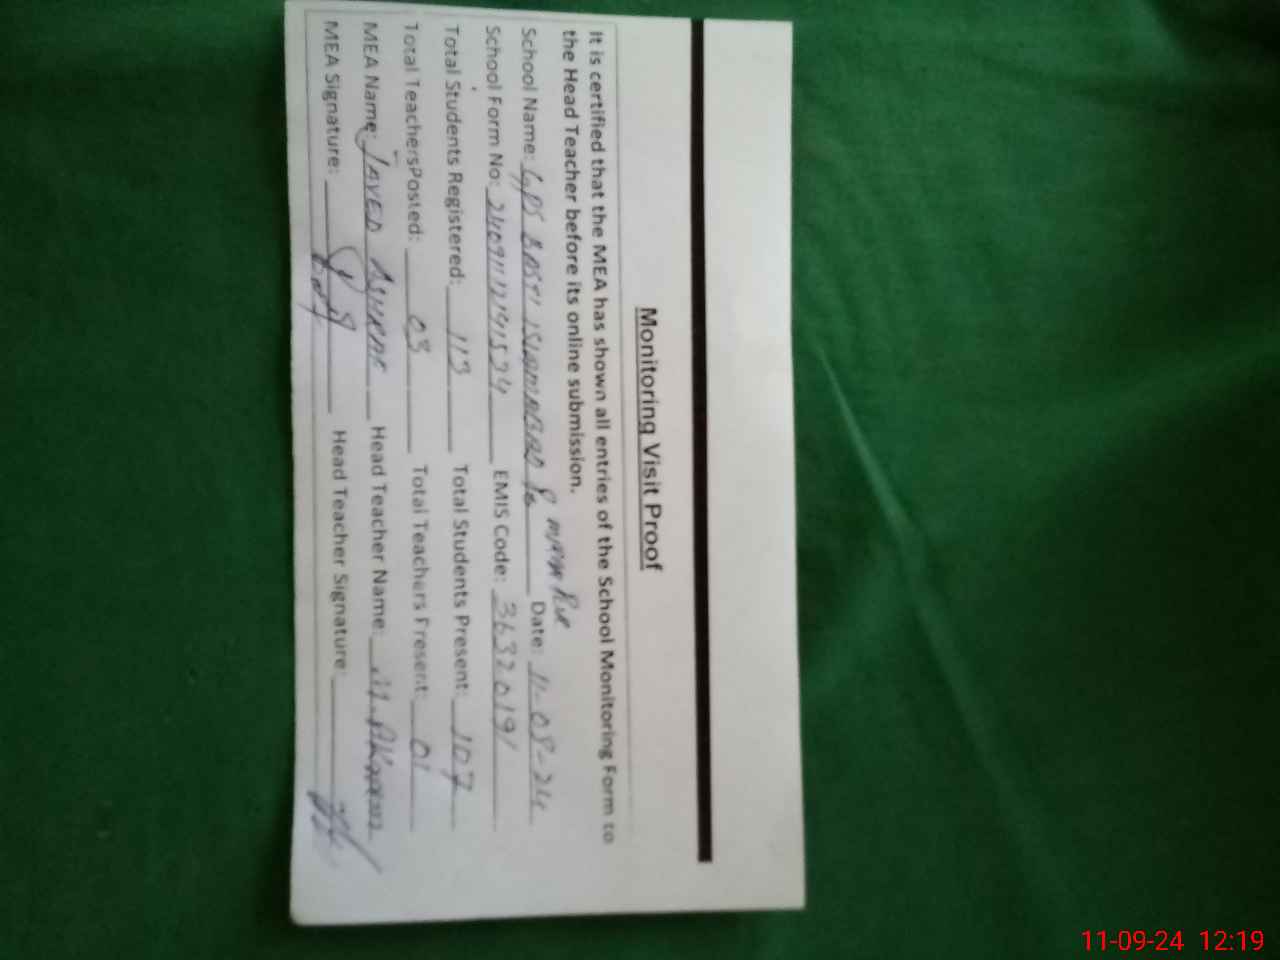 Monitoring Visit Proof
It is certified that the MEA has shown all entries of the School Monitoring Form to
the Head Teacher before its online submission.
School Name: GPS BASTI ISLAMABAD Date: 11-09-24
School Form No: EMIS Code: 36320191
Total Students Registered: 113 Total Students Present: 107
Total TeachersPosted: 03 Total Teachers Present: 01
MEA Name: JAVED ASHRAF Head Teacher Name:
MEA Signature: Head Teacher Signature:
11-09-24 12:19